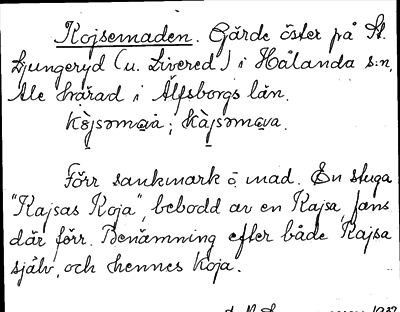 Kojsemaden. Gärde öster på St.
Ljungeryd (u. Livered) i Hålanda s:n,
Ale härad i Älfsborgs län.
Förr sankmark o mad. En stuga
"Kajsas Koja", bebodd av en Kajsa, fans
där förr. Benämning efter både Kajsa
själv, och hennes koja.